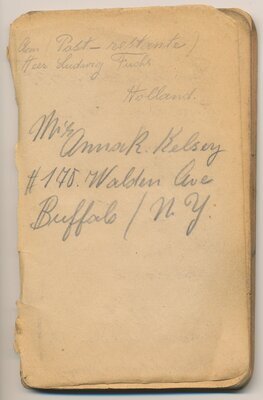 (Post-restante)
Heer Ludwig Fuchs
Holland.
Miss
Anna R. Kelsey
# 170. Walden Ave
Buffalo / N. Y.